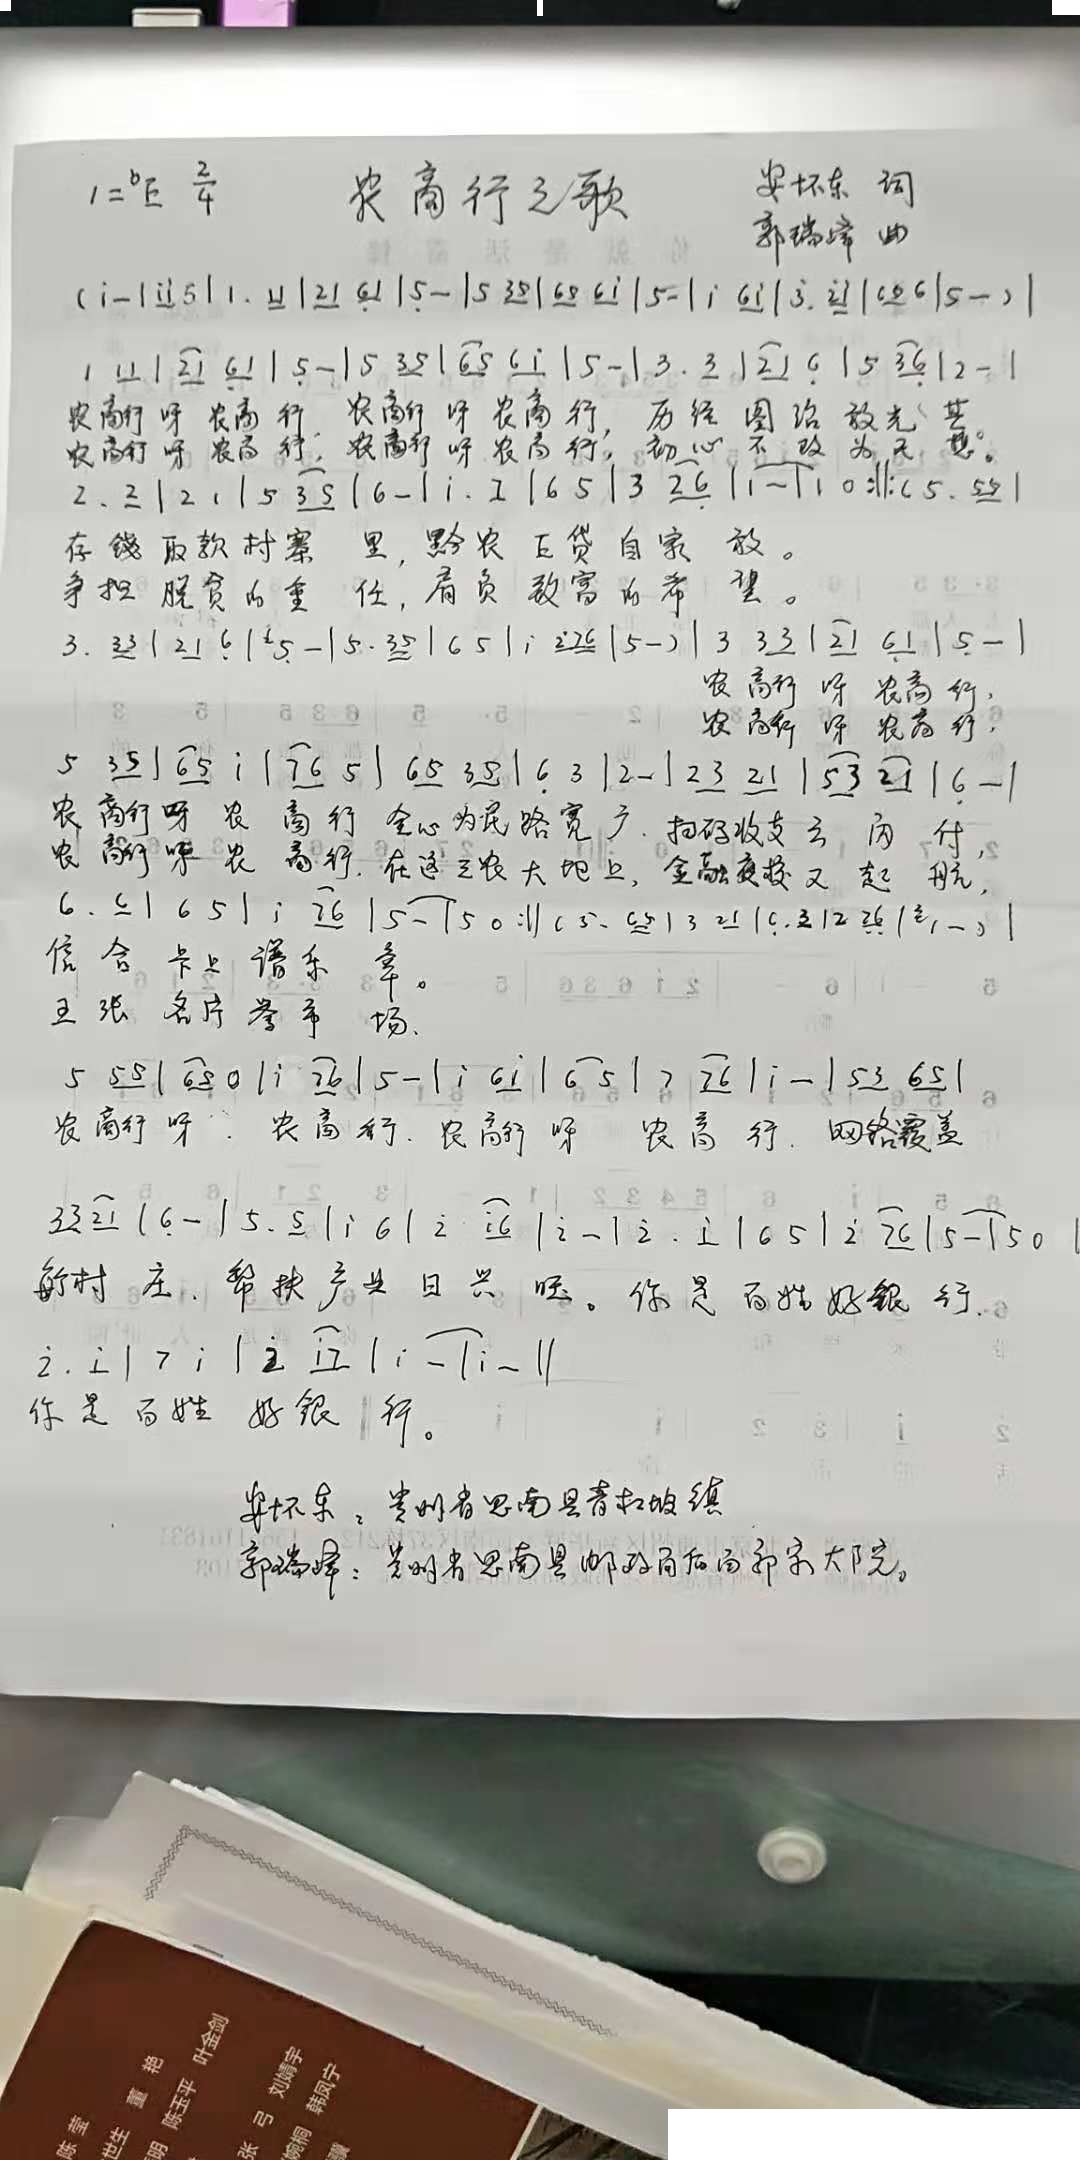 1=ᵇE 2/4 农商行之歌 安怀东 词
郭瑞峰 曲
(i-|i i 5|1. 11|21 61|5-|5 35|65 6i|5-|i 6i|3. 2i|656|5-)|
1 11|21 61|5-|5 35|65 6i|5-|3. 3|21 6|5 36|2-|
农商行呀农商行,农商行呀农商行,历经图治放光
农商行呀农商行,农商行呀农商行,初心不改为民想。
2. 2|2 1|5 35|6-|i. i|6 5|3 26|1-|1 0:‖:(5. 55|
存钱取款村寨里,黔农E贷自家放。
争担脱贫的重任,肩负致富的希望。
3. 33|21 6|5-|5. 35|6 5|i i76|5-)|3 33|21 61|5-|
农商行呀农商行,
农商行呀农商行,
5 35|65 i|76 5|65 35|6 3|2-|23 21|53 21|6-|
农商行呀农商行全心为民路宽广.扫码收支云闪付,
农商行呀农商行.在这三农大地上,金融夜校又起航,
6. 6|6 5|i 76|5-|5 0:‖(5. 65|3 21|6. 3|2 26|1-)|
信合卡上谱乐章。
王张名片誉市场.
5 55|650|i 76|5-|i 6i|65|7 76|i-|53 65|
农商行呀.农商行.农商行呀农商行.网络覆盖
3321|6-|5. 5|i 6|2 i6|2-|2. i|65|2 76|5-|50|
新村庄.帮扶产业日兴旺。你是百姓好银行.
2. i|7 i|2 i7|i-|i-‖
你是百姓好银行。
安怀东:贵州省思南县青杠坡镇
郭瑞峰:贵州省思南县邮政局后面郭家大院。
陈莹
世生 董艳
明 陈玉平 叶金剑
张弓 刘靖宇
婉桐 韩凤宁